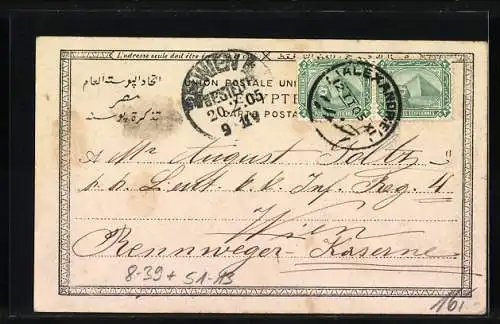 L'adresse seule doit être
اتحاد البوستة العام
مصر
تذكرة بوسته
UNION POSTALE UNI
EGYPTE
CARTE POSTA
WIEN
BESTELLT
20.X.05
9
ALEXANDRIE
A Mr August
k. k. Inf. Reg. 4
Wien
Rennweger-Kaserne
8-39 + 51-13
16/-